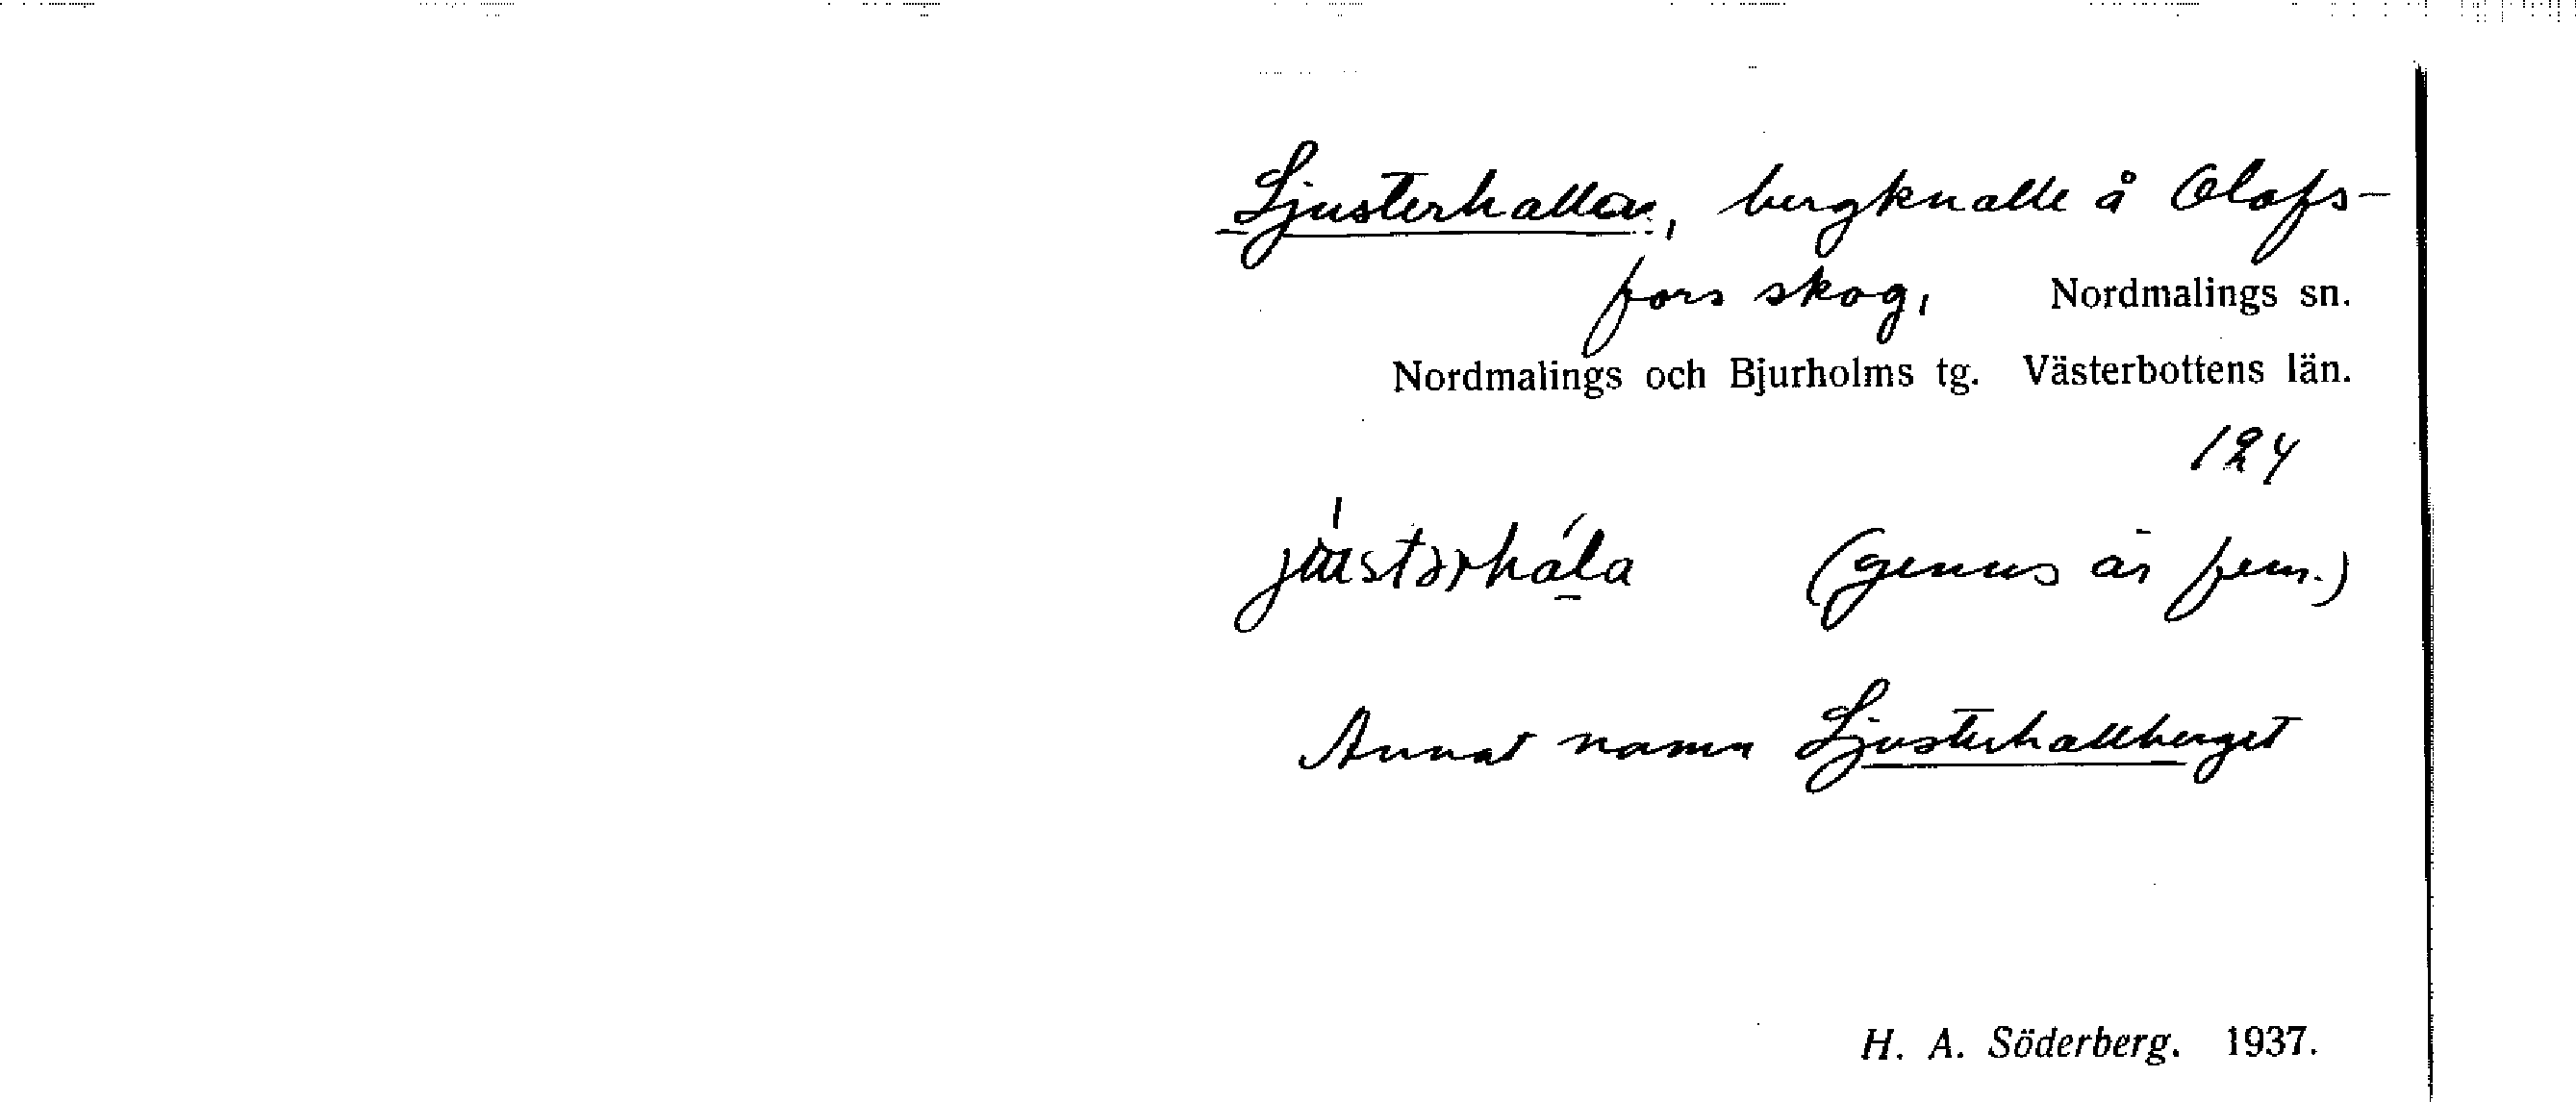 Ljusterhallen, bergknalle å Olofs-
fors skog, Nordmalings sn.
Nordmalings och Bjurholms tg. Västerbottens län.
124
(genus är fem.)
Annat namn Ljusterhallberget
H. A. Söderberg. 1937.